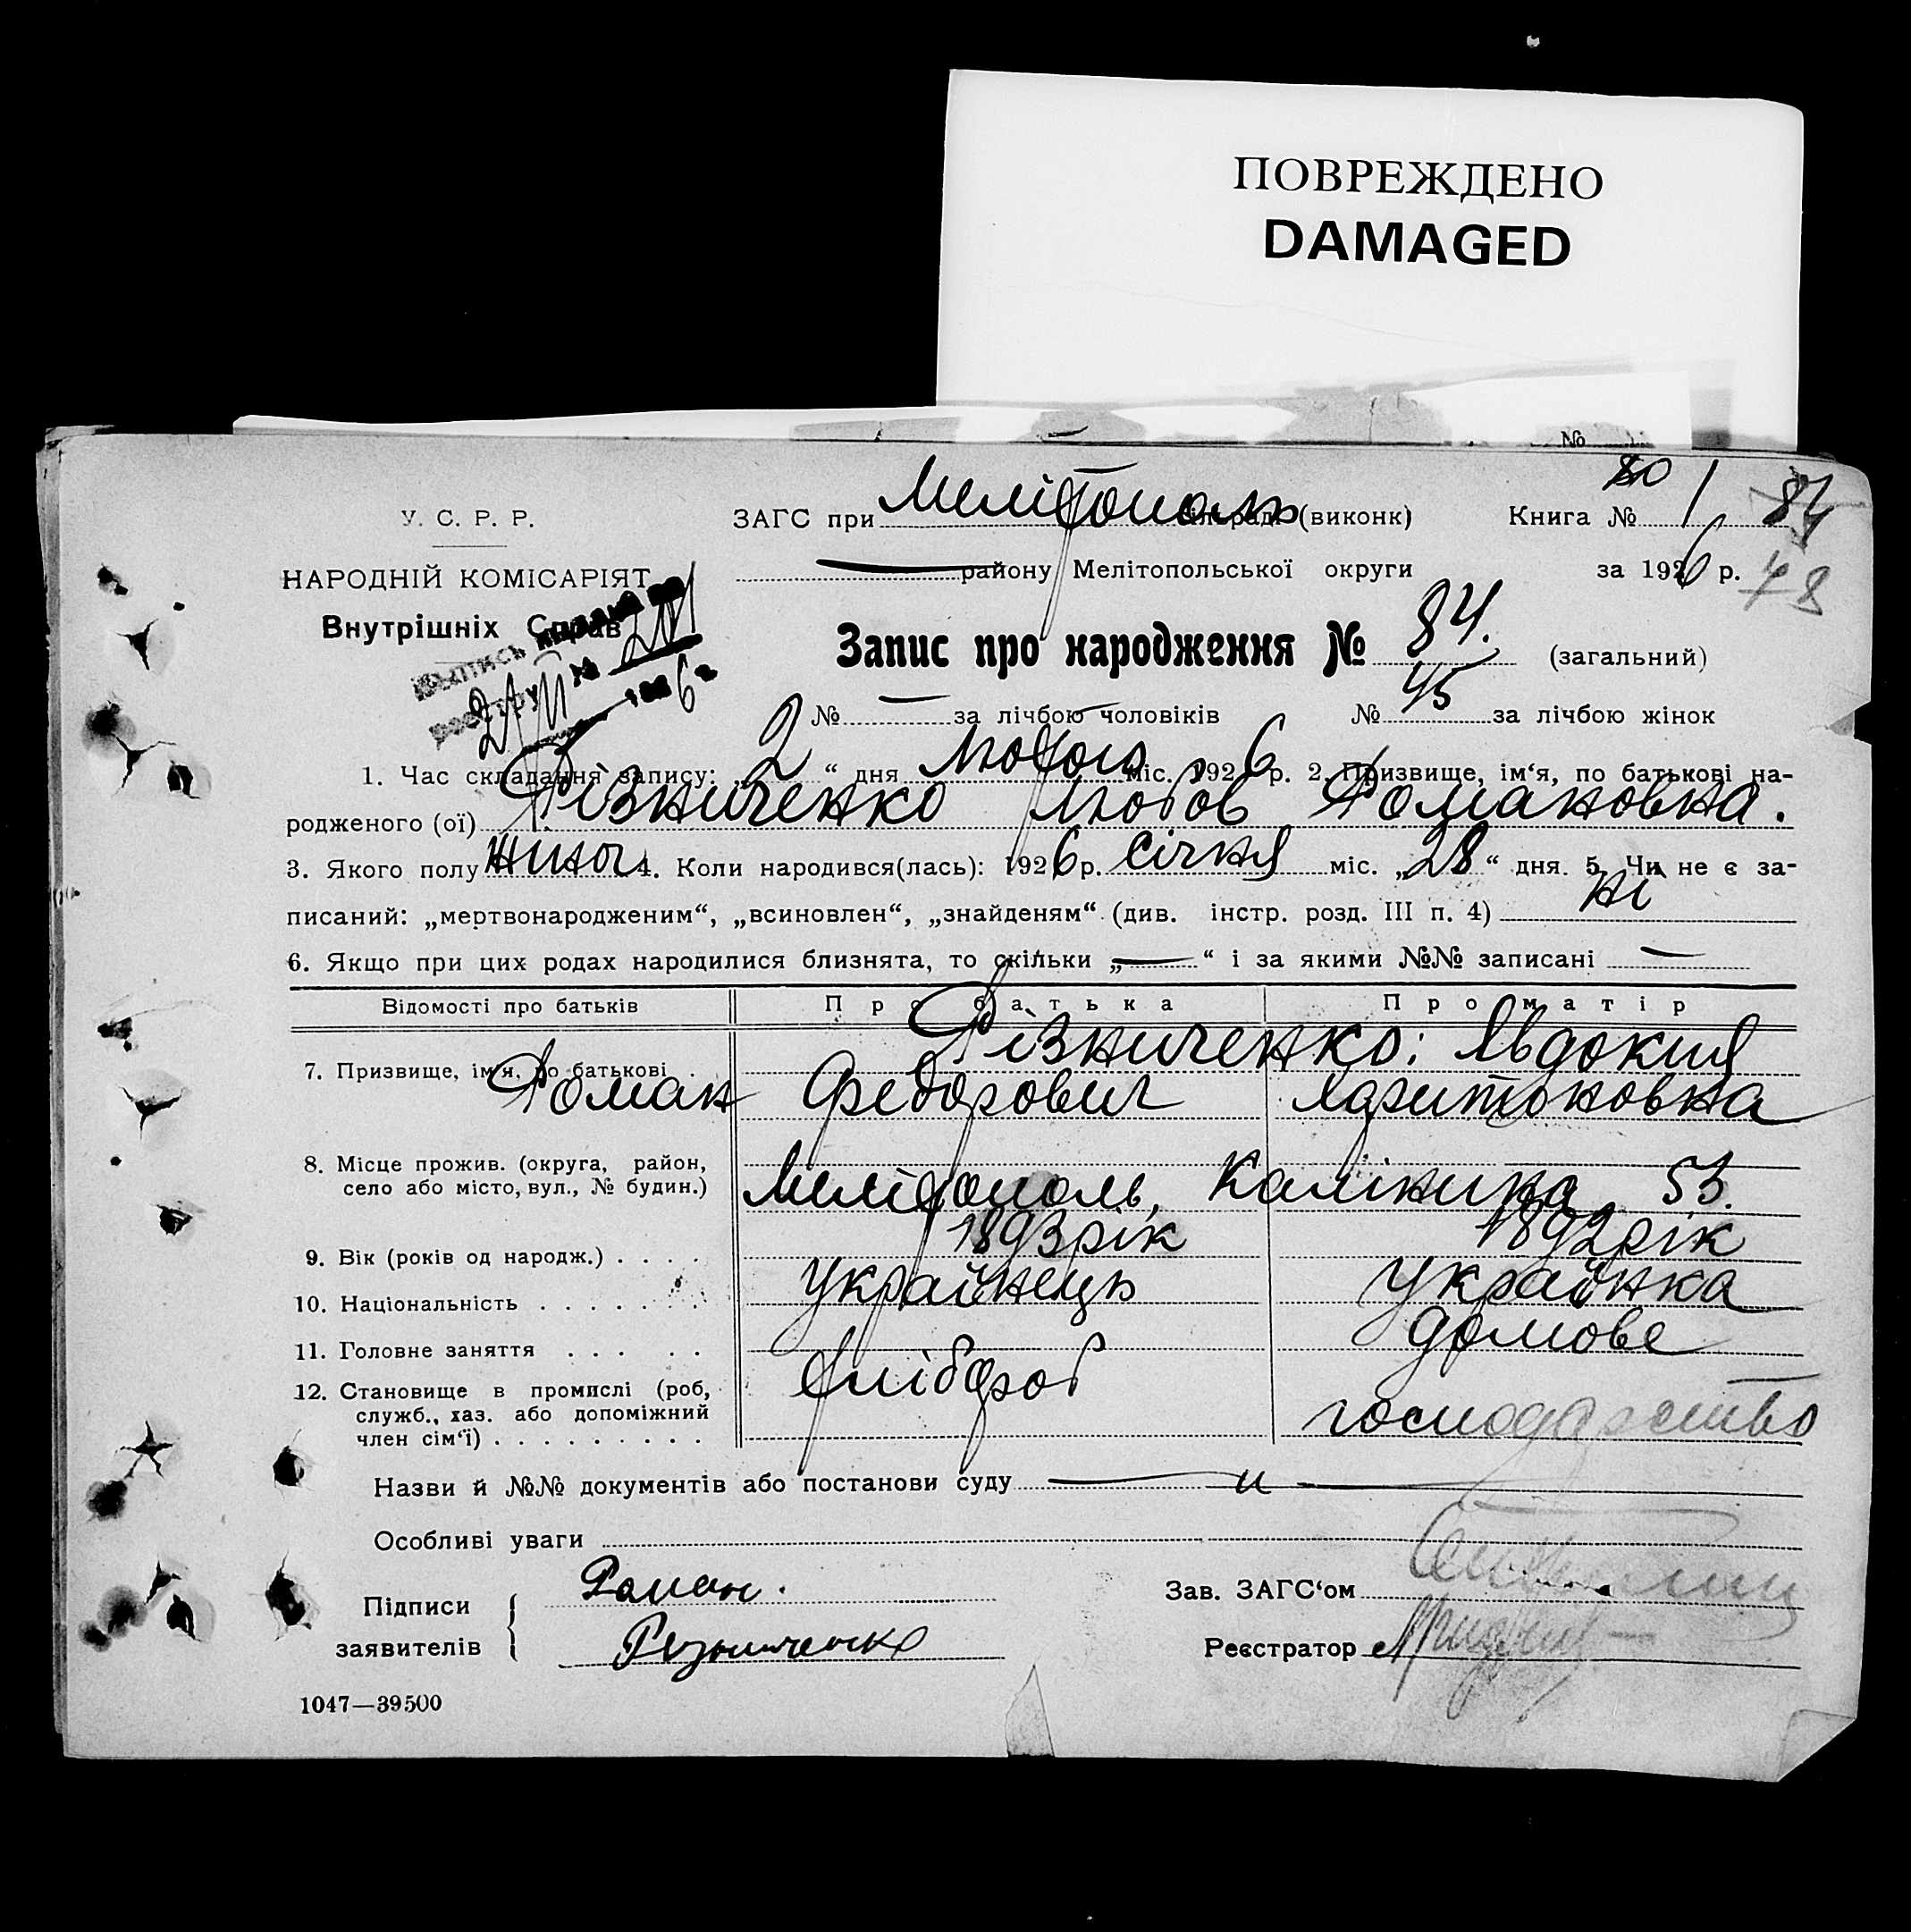 ПОВРЕЖДЕНО
DAMAGED
№
80
У. С. Р. Р.
ЗАГС при Мелітополь сільраді (виконк)
Книга № 1 84
НАРОДНІЙ КОМІСАРІЯТ
району Мелітопольської округи
за 1926 р. 78
Внутрішніх Справ
Выпись выдана по
реестру № 201
21/VI 1926 г
Запис про народження № 84. (загальний)
№ — за лічбою чоловіків № 45 за лічбою жінок
1. Час складання запису: „2“ дня Лютого міс. 1926 р. 2. Призвище, ім‘я, по батькові на-
родженого (ої) Різниченко Любов Романовна.
3. Якого полу жіноч 4. Коли народився(лась): 1926 р. Січня міс. „28“ дня. 5. Чи не є за-
писаний: „мертвонародженим“, „всиновлен“, „знайденям“ (див. інстр. розд. III п. 4) ні
6. Якщо при цих родах народилися близнята, то скільки „—“ і за якими №№ записані —
Відомості про батьків Про батька Про матір
7. Призвище, ім‘я, по батькові . Різниченко: Явдокия
Роман Федорович Харитоновна
8. Місце прожив. (округа, район,
село або місто, вул., № будин.) Мелітополь, Калініна 53.
9. Вік (років од народж.) . . . . 1893 рік 1892 рік
10. Національність . . . . . . . Українець Українка
11. Головне заняття . . . . . Хлібороб домове
12. Становище в промислі (роб,
служб., хаз. або допоміжний
член сім‘ї) . . . . . . . . . господарство
Назви й №№ документів або постанови суду — „ —
Особливі уваги
Підписи
заявителів
Роман.
Резниченко
Зав. ЗАГС‘ом
Реєстратор
1047—39500